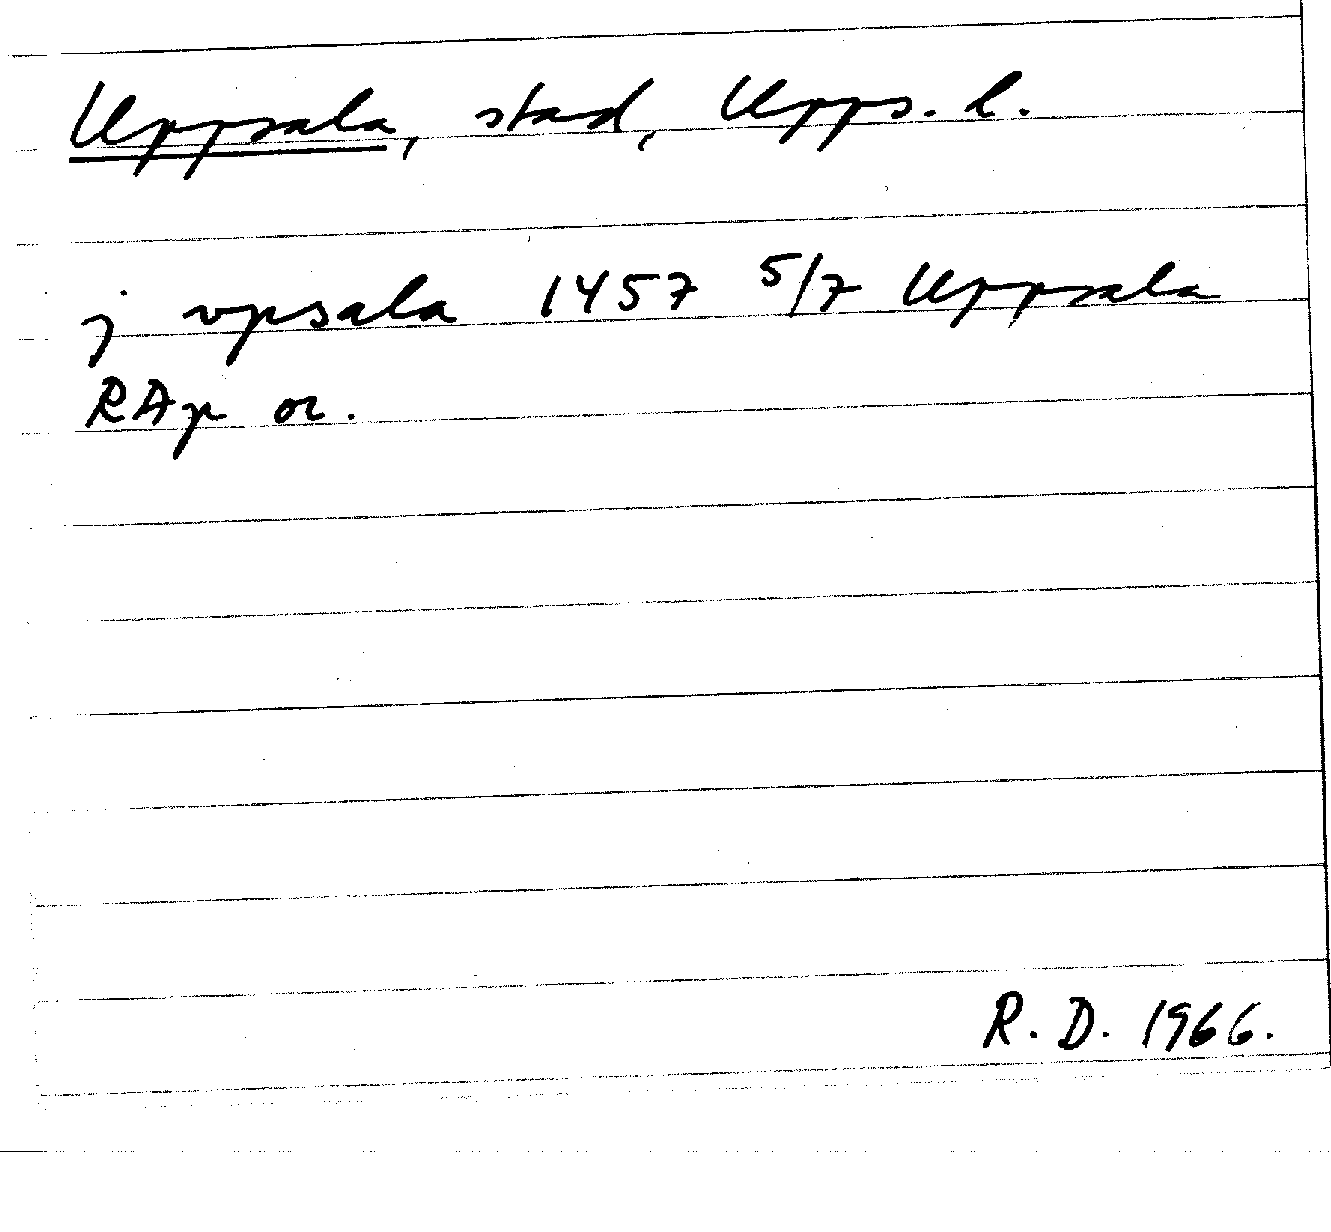 Uppsala, stad, Upps. l.
j vpsala 1457 5/7 Uppsala
RAp or.
R. D. 1966.